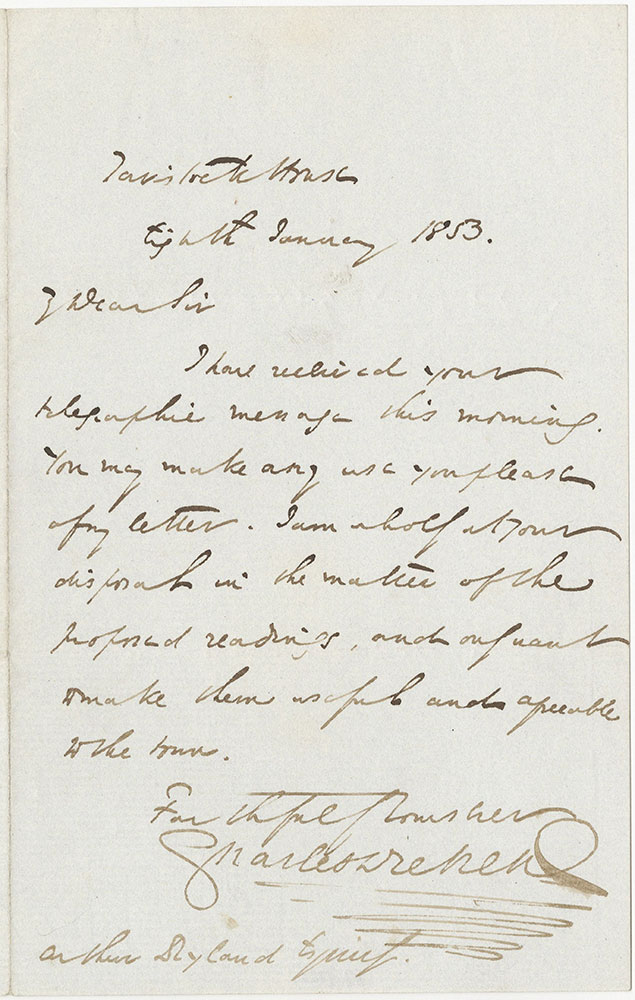 Tavistock House
Eighth January 1853.
My Dear Sir
I have received your
telegraphic message this morning.
You may make any use you please
of my letter. I am wholly at your
disposal in the matter of the
proposed readings, and only want
to make them useful and agreeable
to the town.
Faithfully Yours ever
Charles Dickens
Arthur Ryland Esquire.